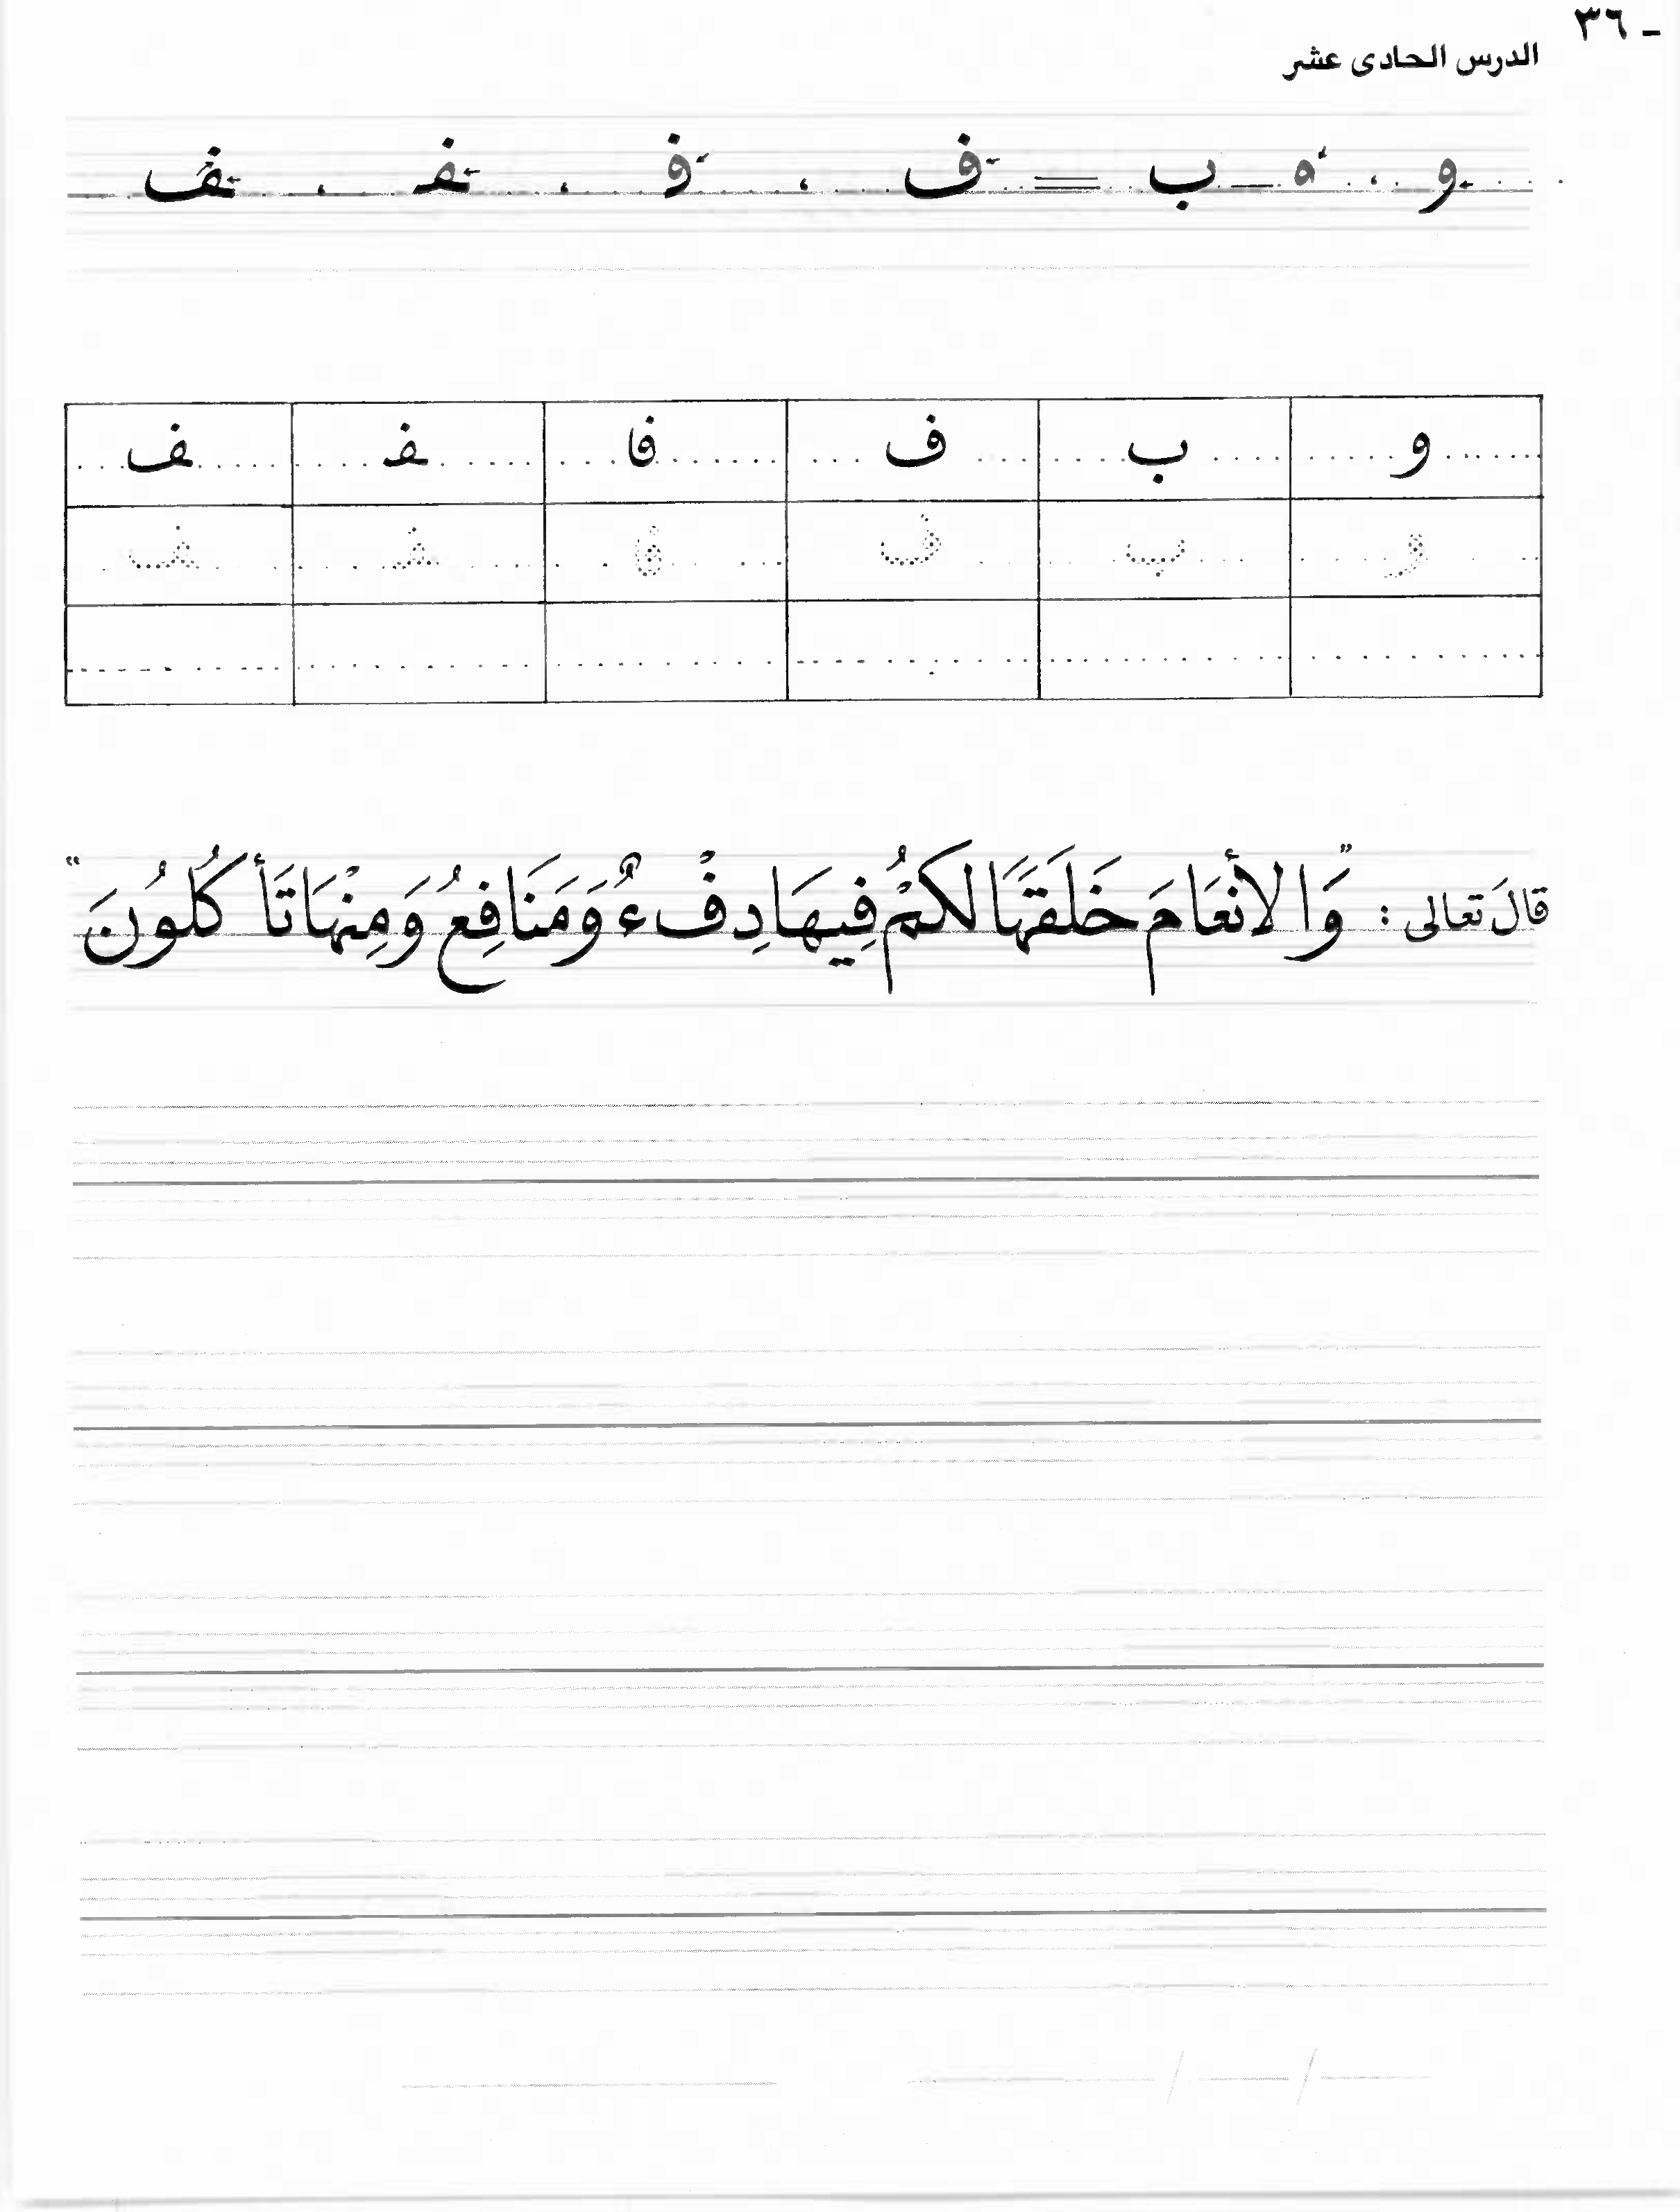 ٣٦ -
الدرس الحادى عشر
و ، ه — ب = ف ، ف ، ف ، ف
و ب ف فا ف ف
و ب ف فا ف ف
قالَ تعالى : "وَالأنْعَامَ خَلَقَهَا لَكُمْ فِيهَا دِفْءٌ وَمَنَافِعُ وَمِنْهَا تَأْكُلُونَ"